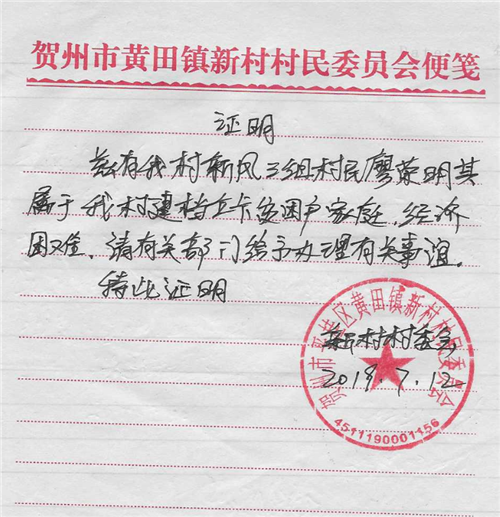 贺州市黄田镇新村村民委员会便笺
证明
兹有我村新风3组村民廖荣明其
属于我村建档立卡贫困户家庭，经济
困难。请有关部门给予办理有关事谊。
特此证明
新村村委会
2019.7.12
贺州市平桂区黄田镇新村村民委员会
4511190001156